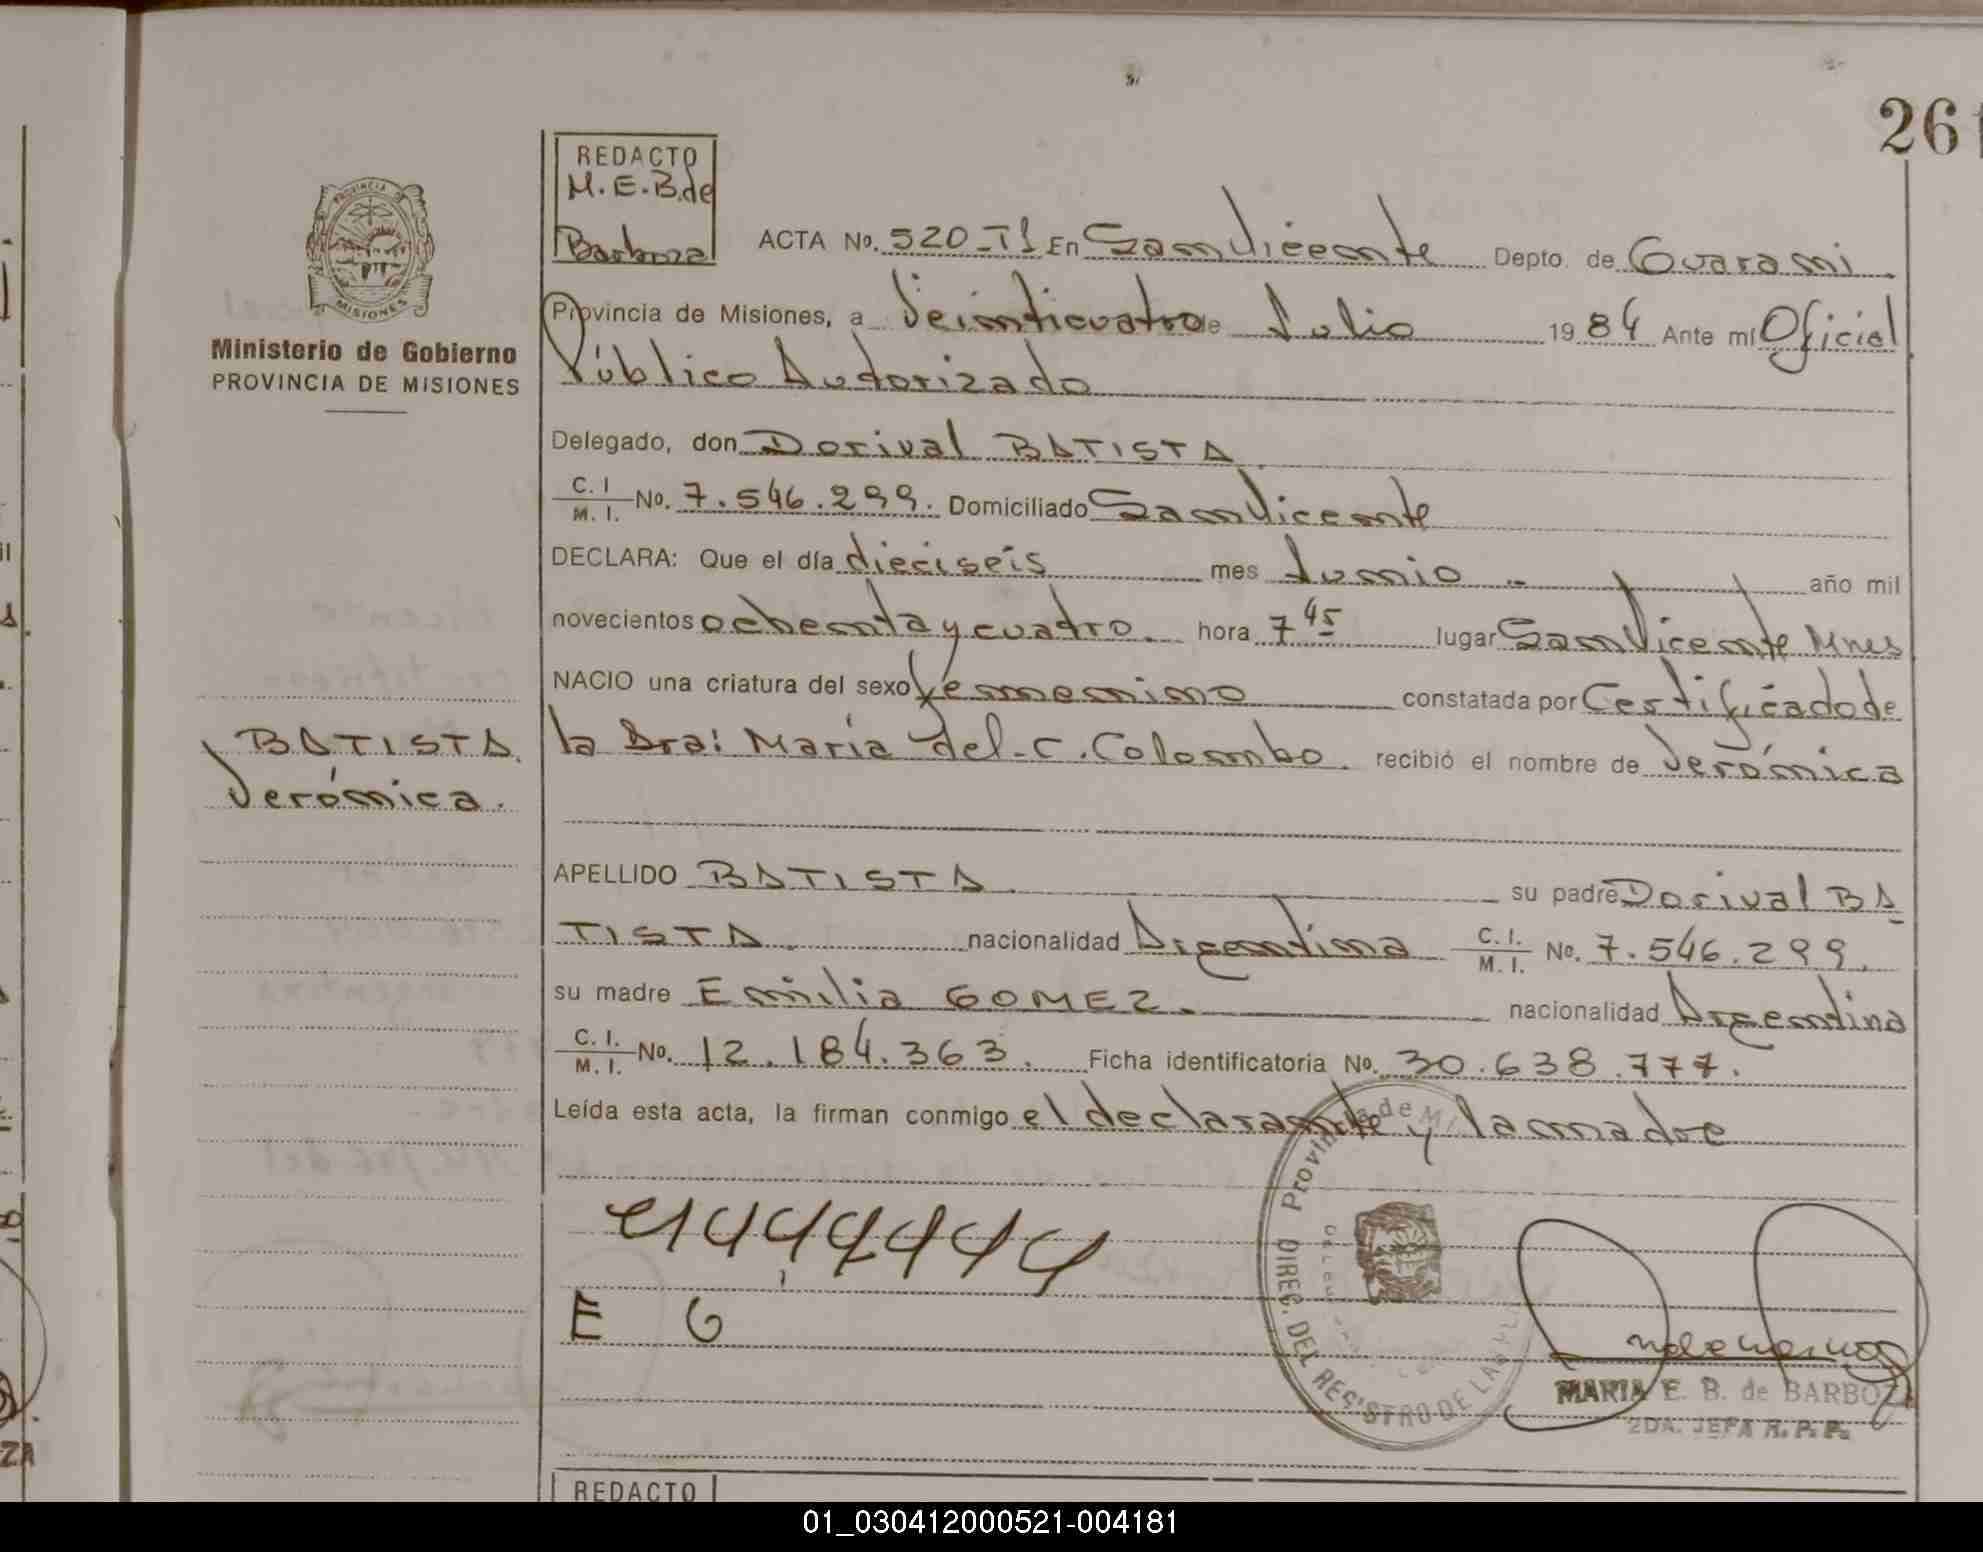 26
REDACTO
M.E.B.de
Barboza
PROVINCIA DE
MISIONES
Ministerio de Gobierno
PROVINCIA DE MISIONES
ACTA No. 520-T1 En San Vicente Depto. de Guarani
Provincia de Misiones, a Veinticuatro de Julio 1984 Ante mí Oficial
Público Autorizado
Delegado, don Dorival BATISTA
C.I. M.I. No. 7.546.299. Domiciliado San Vicente
DECLARA: Que el día dieciseis mes Junio año mil
novecientos ochenta y cuatro. hora 7 45 lugar San Vicente Mnes
NACIO una criatura del sexo femenino constatada por Certificado de
la Dra: María del-C. Colombo. recibió el nombre de Verónica
BATISTA
Verónica.
APELLIDO BATISTA su padre Dorival BA
TISTA nacionalidad Argentina C.I. M.I. No. 7.546.299.
su madre Emilia GOMEZ. nacionalidad Argentina
C.I. M.I. No. 12.184.363. Ficha identificatoria No. 30.638.777.
Leída esta acta, la firman conmigo el declarante y la madre
E G
Provincia de Mi
DIREC. DEL REGISTRO DE LAS
MARIA E. B. de BARBOZA
2DA. JEFA R.P.P.
REDACTO
ZA
01_030412000521-004181